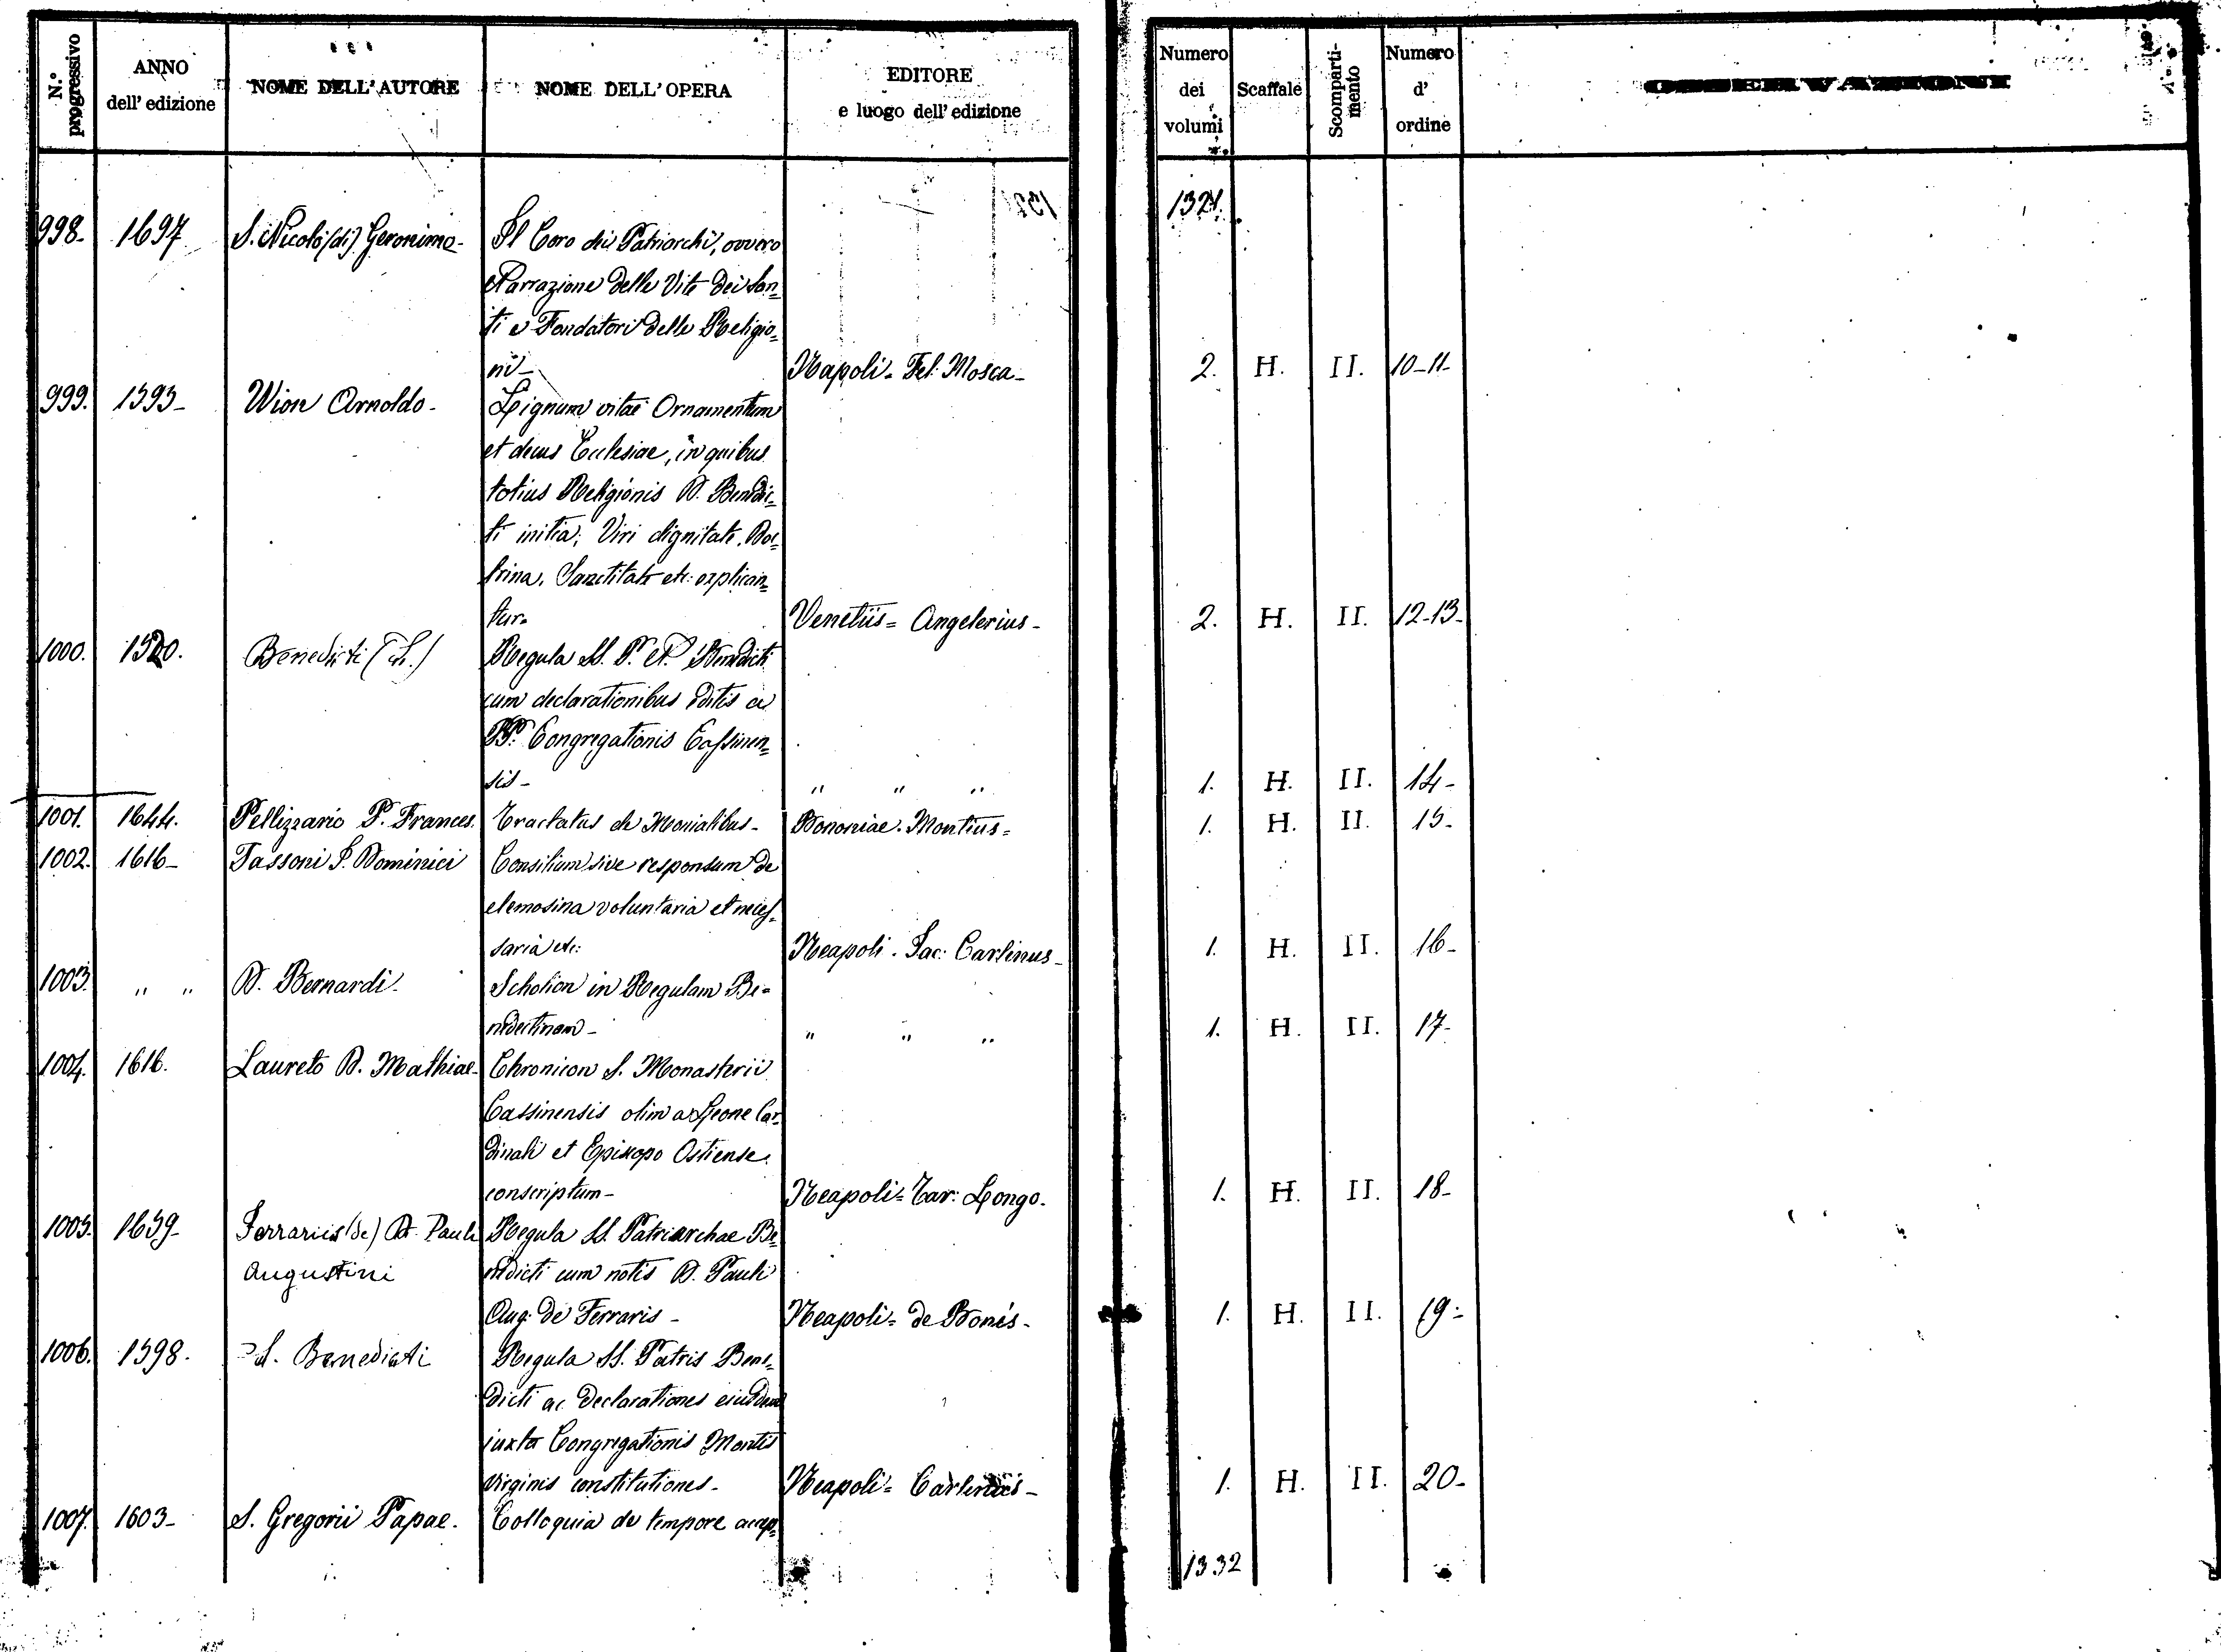 N.° progressivo | ANNO dell' edizione | NOME DELL'AUTORE | NOME DELL'OPERA | EDITORE e luogo dell' edizione | Numero dei volumi | Scaffale | Scomparti-mento | Numero d' ordine | OSSERVAZIONI
1321.
998- 1697 S. Nicolò (di) Geronimo- Il Coro dei Patriarchi, ovvero
Narrazione delle Vite dei San=
ti e Fondatori delle Religio=
ni- Napoli- Fel: Mosca- 2. H. II. 10-11-
999. 1593- Wion Arnoldo- Lignum vitae Ornamentum
et decus Ecclesiae, in quibus
totius Religionis D. Benedic=
ti initia; Viri dignitate, Doc=
trina, Sanctitate etc: explican=
tur- Venetiis= Angelerius- 2. H. II. 12-13-
1000. 1520. Benedicti (S.) Regula SS. P. N. Benedicti
cum declarationibus editis a
PP. Congregationis Cassinen=
sis- " " " 1. H. II. 14-
1001. 1644. Pellizzario P. Frances. Tractatus de Monialibus- Bononiae. Montius= 1. H. II. 15-
1002. 1616- Tassoni J. Dominici Consilium sive responsum de
elemosina voluntaria et neces=
saria etc: Neapoli- Jac: Carlinus- 1. H. II. 16-
1003. " " D. Bernardi- Scholion in Regulam Be=
nedectinam- " " " 1. H. II. 17-
1004. 1616. Laureto D. Mathiae- Chronicon S. Monasterii
Cassinensis olim a Leone Car=
dinali et Episcopo Ostiense
conscriptum- Neapoli= Tar: Longo. 1. H. II. 18-
1005. 1659- Ferrariis (de) D. Pauli Regula SS. Patriarchae Be=
Augustini nedicti cum notis D. Pauli
Aug: de Ferraris- Neapoli= de Bonis- 1. H. II. 19-
1006. 1598. S. Benedicti Regula SS. Patris Bene=
dicti ac declarationes eiusdem
iuxta Congregationis Montis
Virginis constitutiones- Neapoli= 1. H. II. 20-
1007. 1603- S. Gregorii Papae. Colloquia de tempore accep=
1332